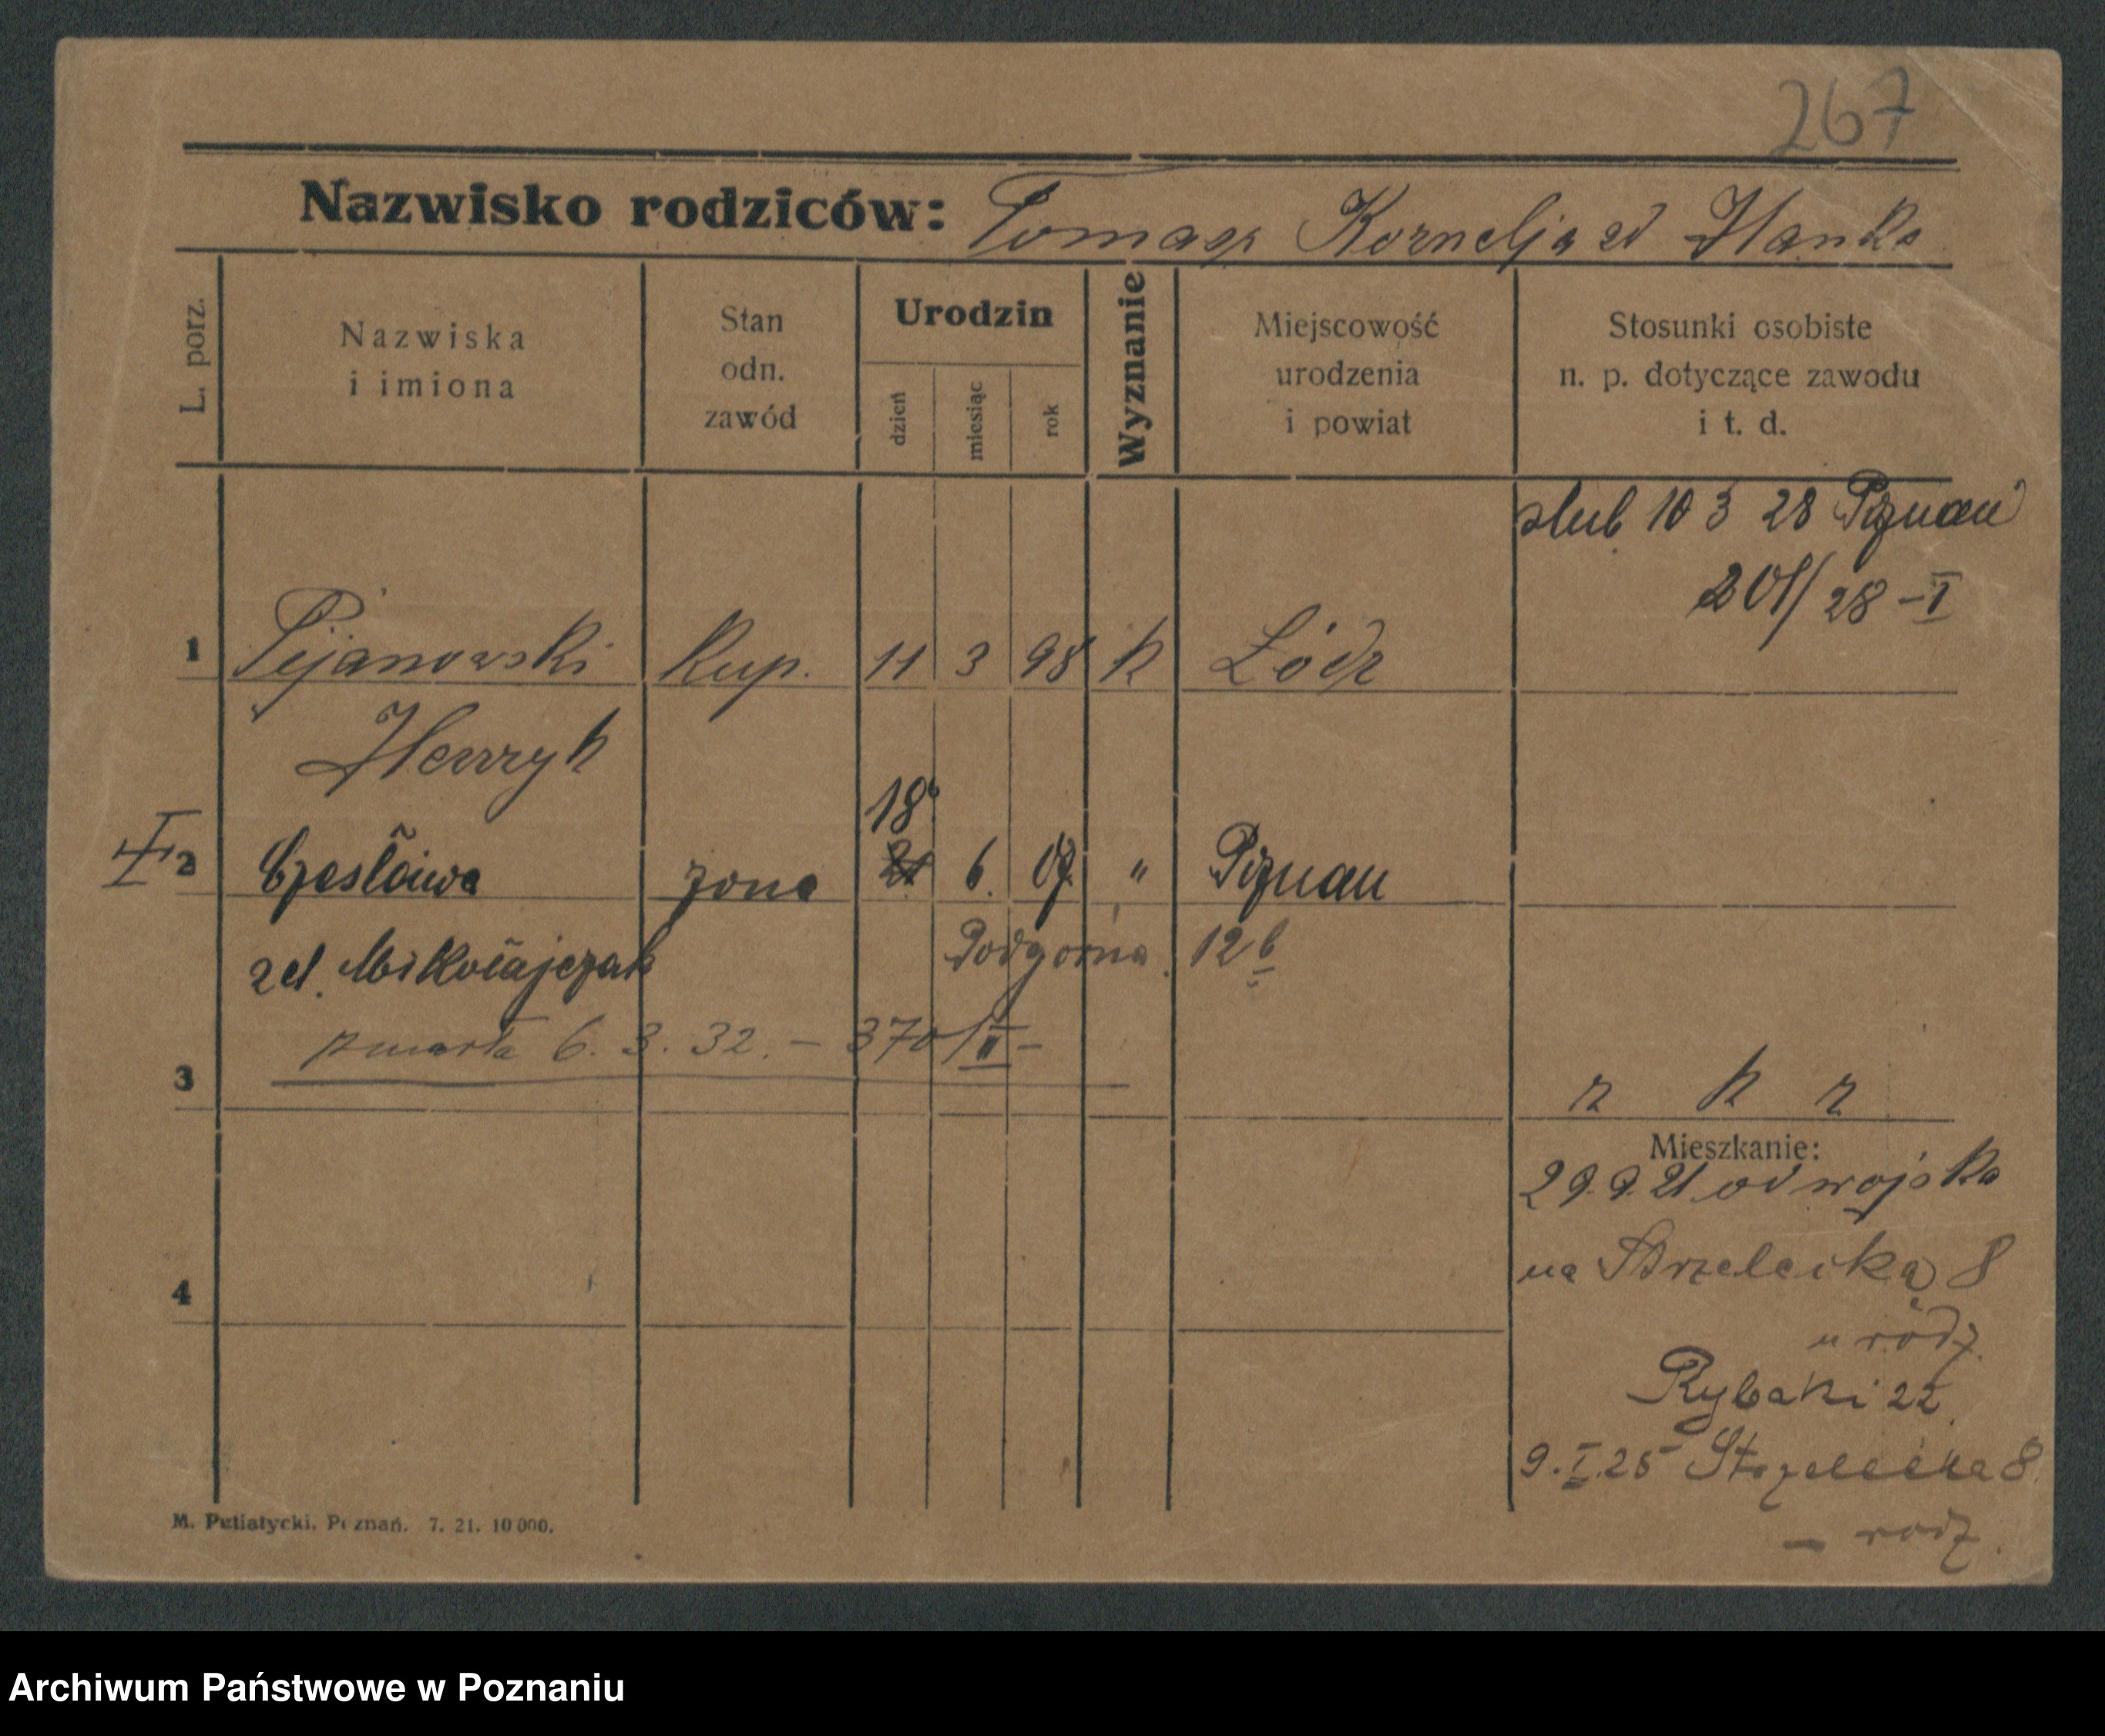 267
Nazwisko rodziców: Tomasz Kornelja zd Hanke
L. porz.
Nazwiska i imiona
Stan odn. zawód
Urodzin
dzień
miesiąc
rok
Wyznanie
Miejscowość urodzenia i powiat
Stosunki osobiste n. p. dotyczące zawodu i t. d.
slub 10 3 28 Poznań
201/28 – I
1 Pijanowski kup. 11 3 98 k Łódz
Henryk
18
I 2 Czesława zona 21 6. 07 " Poznan
zd. Mikołajczak Podgorna 12 b
zmarła 6. 3. 32. – 370/II –
3
r k r
Mieszkanie:
29.9.21 od wojska
na Strzelecką 8
u rodz.
4
Rybaki 22.
9. I. 25 Strzelecka 8.
– rodz.
M. Putiatycki. Poznań. 7. 21. 10 000.
Archiwum Państwowe w Poznaniu